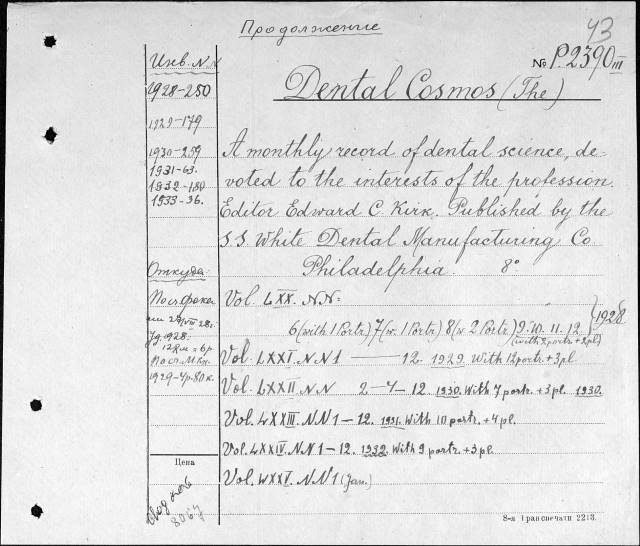 Продолжение
43
№ P.2390 III
Dental Cosmos (The)
A monthly record of dental science, de-
voted to the interests of the profession.
Editor Edward C. Kirk. Published by the
S.S. White Dental Manufacturing Co.
Philadelphia. 8°
Vol. LXX. NN:
6 (with 1 Portr.) 7 (w. 1 Portr.) 8 (w. 2 Portr.) 9. 10. 11. 12 } 1928
(with 2 portr. + 2 pl.)
Vol. LXXI. NN 1 — 12. 1929. With 12 portr. + 3 pl.
Vol. LXXII. NN 2 — 4 — 12. 1930. With 7 portr. + 3 pl. 1930.
Vol. LXXIII. NN 1 — 12. 1931. With 10 portr. + 4 pl.
Vol. LXXIV. NN 1 — 12. 1932. With 9 portr. + 3 pl.
Vol. LXXV. NN 1 (Jan.)
Инв. N.N
1928-250
1929-179
1930-259
1931-63.
1932-180
1933-36.
Откуда:
1928.
1929-4р.80к.
Цена
8067
8-я Транспечати 2213.